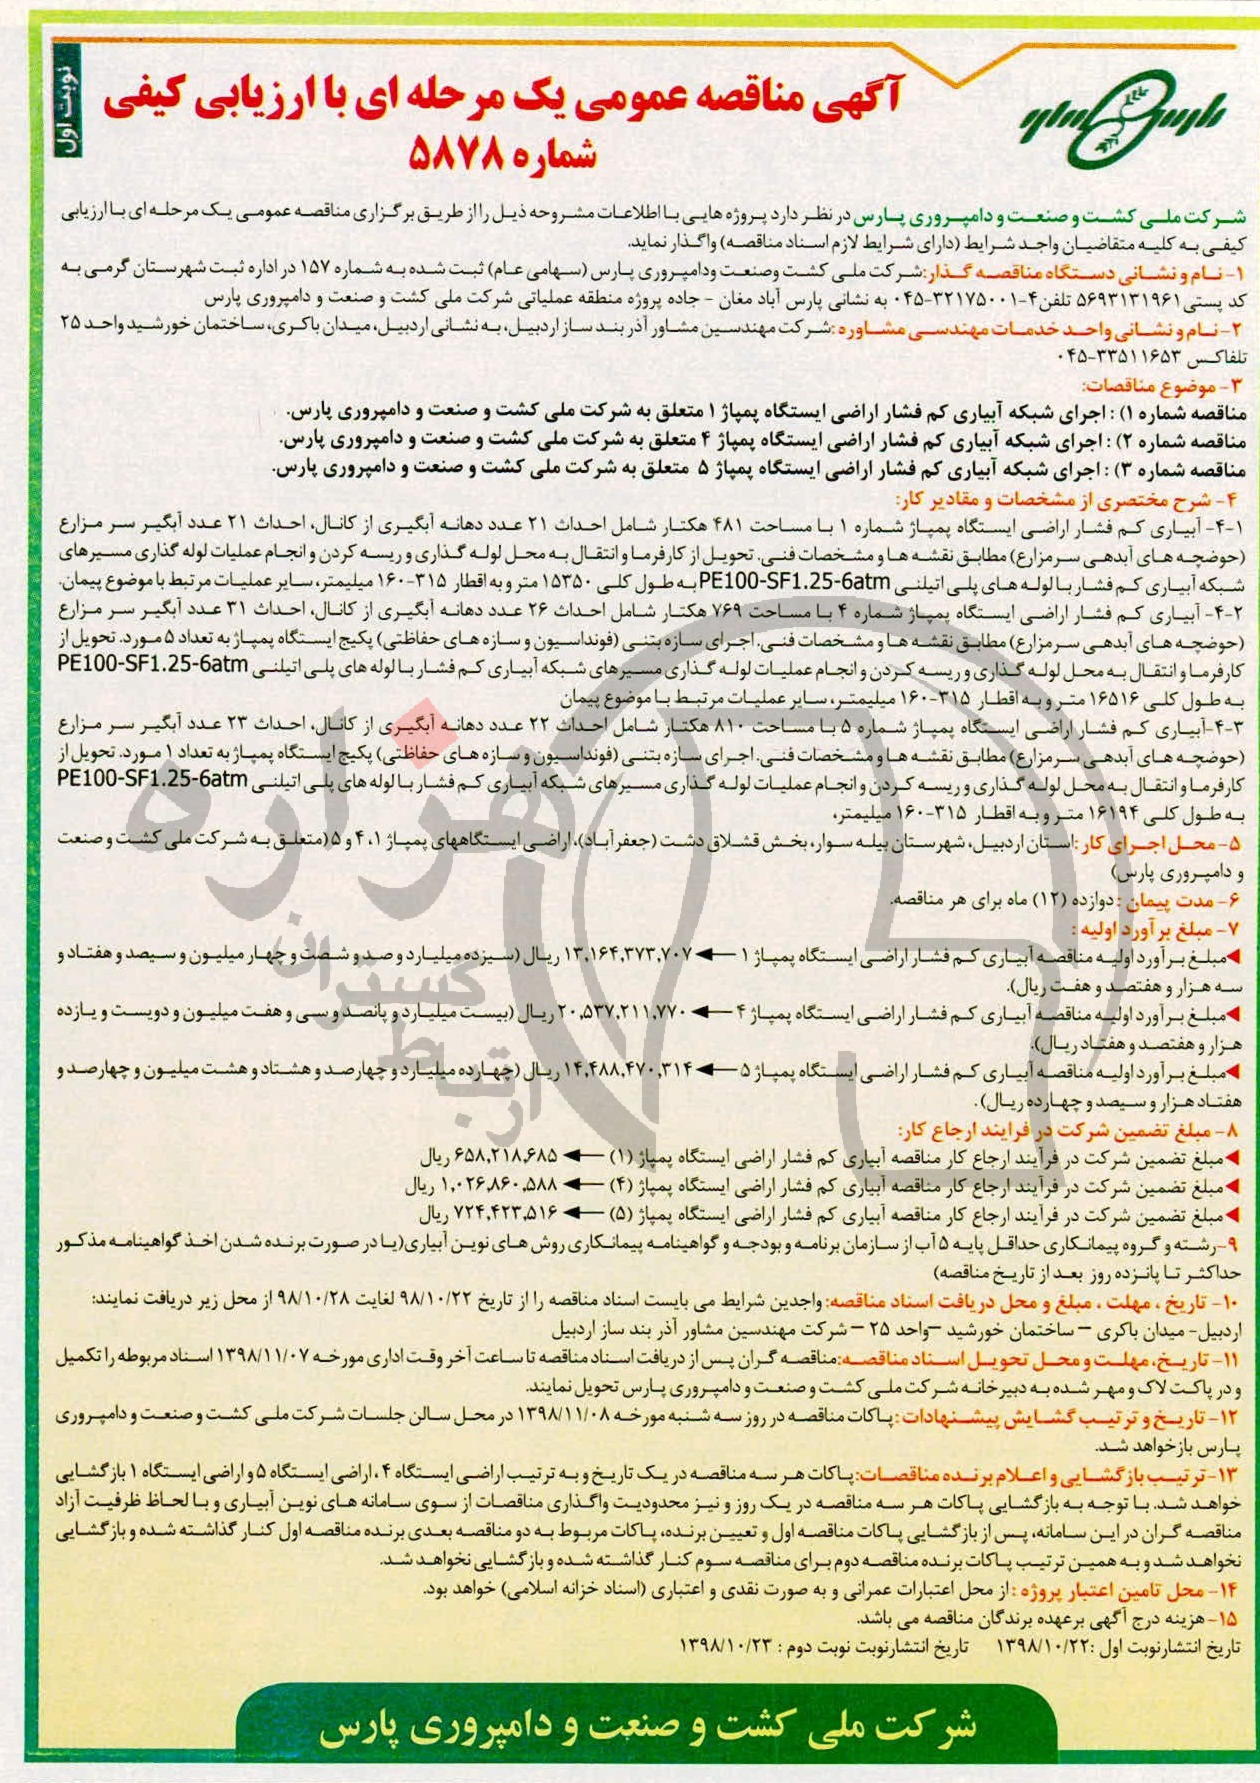 نوبت اول
پارس
آگهی مناقصه عمومی یک مرحله ای با ارزیابی کیفی
شماره ۵۸۷۸
شرکت ملی کشت و صنعت و دامپروری پارس در نظر دارد پروژه هایی با اطلاعات مشروحه ذیل را از طریق برگزاری مناقصه عمومی یک مرحله ای با ارزیابی
کیفی به کلیه متقاضیان واجد شرایط (دارای شرایط لازم اسناد مناقصه) واگذار نماید.
۱- نام و نشانی دستگاه مناقصه گذار: شرکت ملی کشت وصنعت ودامپروری پارس (سهامی عام) ثبت شده به شماره ۱۵۷ در اداره ثبت شهرستان گرمی به
کد پستی ۵۶۹۳۱۳۱۹۶۱ تلفن ۴-۳۲۱۷۵۰۰۱-۰۴۵ به نشانی پارس آباد مغان - جاده پروژه منطقه عملیاتی شرکت ملی کشت و صنعت و دامپروری پارس
۲- نام و نشانی واحد خدمات مهندسی مشاوره: شرکت مهندسین مشاور آذر بند ساز اردبیل، به نشانی اردبیل، میدان باکری، ساختمان خورشید واحد ۲۵
تلفاکس ۳۳۵۱۱۶۵۳-۰۴۵
۳- موضوع مناقصات:
مناقصه شماره ۱): اجرای شبکه آبیاری کم فشار اراضی ایستگاه پمپاژ ۱ متعلق به شرکت ملی کشت و صنعت و دامپروری پارس.
مناقصه شماره ۲): اجرای شبکه آبیاری کم فشار اراضی ایستگاه پمپاژ ۴ متعلق به شرکت ملی کشت و صنعت و دامپروری پارس.
مناقصه شماره ۳): اجرای شبکه آبیاری کم فشار اراضی ایستگاه پمپاژ ۵ متعلق به شرکت ملی کشت و صنعت و دامپروری پارس.
۴- شرح مختصری از مشخصات و مقادیر کار:
۴-۱- آبیاری کم فشار اراضی ایستگاه پمپاژ شماره ۱ با مساحت ۴۸۱ هکتار شامل احداث ۲۱ عدد دهانه آبگیری از کانال، احداث ۲۱ عدد آبگیر سر مزارع
(حوضچه های آبدهی سرمزارع) مطابق نقشه ها و مشخصات فنی. تحویل از کارفرما و انتقال به محل لوله گذاری و ریسه کردن و انجام عملیات لوله گذاری مسیرهای
شبکه آبیاری کم فشار با لوله های پلی اتیلنی PE100-SF1.25-6atm به طول کلی ۱۵۳۵۰ متر و به اقطار ۳۱۵-۱۶۰ میلیمتر، سایر عملیات مرتبط با موضوع پیمان.
۴-۲- آبیاری کم فشار اراضی ایستگاه پمپاژ شماره ۴ با مساحت ۷۶۹ هکتار شامل احداث ۲۶ عدد دهانه آبگیری از کانال، احداث ۳۱ عدد آبگیر سر مزارع
(حوضچه های آبدهی سرمزارع) مطابق نقشه ها و مشخصات فنی. اجرای سازه بتنی (فونداسیون و سازه های حفاظتی) پکیج ایستگاه پمپاژ به تعداد ۵ مورد. تحویل از
کارفرما و انتقال به محل لوله گذاری و ریسه کردن و انجام عملیات لوله گذاری مسیرهای شبکه آبیاری کم فشار با لوله های پلی اتیلنی PE100-SF1.25-6atm
به طول کلی ۱۶۵۱۶ متر و به اقطار ۳۱۵-۱۶۰ میلیمتر، سایر عملیات مرتبط با موضوع پیمان
۴-۳-آبیاری کم فشار اراضی ایستگاه پمپاژ شماره ۵ با مساحت ۸۱۰ هکتار شامل احداث ۲۲ عدد دهانه آبگیری از کانال، احداث ۲۳ عدد آبگیر سر مزارع
(حوضچه های آبدهی سرمزارع) مطابق نقشه ها و مشخصات فنی. اجرای سازه بتنی (فونداسیون و سازه های حفاظتی) پکیج ایستگاه پمپاژ به تعداد ۱ مورد. تحویل از
کارفرما و انتقال به محل لوله گذاری و ریسه کردن و انجام عملیات لوله گذاری مسیرهای شبکه آبیاری کم فشار با لوله های پلی اتیلنی PE100-SF1.25-6atm
به طول کلی ۱۶۱۹۴ متر و به اقطار ۳۱۵-۱۶۰ میلیمتر،
۵- محل اجرای کار: استان اردبیل، شهرستان بیله سوار، بخش قشلاق دشت (جعفرآباد)، اراضی ایستگاههای پمپاژ ۱، ۴ و ۵ (متعلق به شرکت ملی کشت و صنعت
و دامپروری پارس)
۶- مدت پیمان: دوازده (۱۲) ماه برای هر مناقصه.
۷- مبلغ برآورد اولیه:
◄مبلغ برآورد اولیه مناقصه آبیاری کم فشار اراضی ایستگاه پمپاژ ۱ ← ۱۳,۱۶۴,۳۷۳,۷۰۷ ریال (سیزده میلیارد و صد و شصت و چهار میلیون و سیصد و هفتاد و
سه هزار و هفتصد و هفت ریال).
◄مبلغ برآورد اولیه مناقصه آبیاری کم فشار اراضی ایستگاه پمپاژ ۴ ← ۲۰,۵۳۷,۲۱۱,۷۷۰ ریال (بیست میلیارد و پانصد و سی و هفت میلیون و دویست و یازده
هزار و هفتصد و هفتاد ریال).
◄مبلغ برآورد اولیه مناقصه آبیاری کم فشار اراضی ایستگاه پمپاژ ۵ ← ۱۴,۴۸۸,۴۷۰,۳۱۴ ریال (چهارده میلیارد و چهارصد و هشتاد و هشت میلیون و چهارصد و
هفتاد هزار و سیصد و چهارده ریال).
۸- مبلغ تضمین شرکت در فرایند ارجاع کار:
◄مبلغ تضمین شرکت در فرآیند ارجاع کار مناقصه آبیاری کم فشار اراضی ایستگاه پمپاژ (۱) ← ۶۵۸,۲۱۸,۶۸۵ ریال
◄مبلغ تضمین شرکت در فرآیند ارجاع کار مناقصه آبیاری کم فشار اراضی ایستگاه پمپاژ (۴) ← ۱,۰۲۶,۸۶۰,۵۸۸ ریال
◄مبلغ تضمین شرکت در فرآیند ارجاع کار مناقصه آبیاری کم فشار اراضی ایستگاه پمپاژ (۵) ← ۷۲۴,۴۲۳,۵۱۶ ریال
۹-رشته و گروه پیمانکاری حداقل پایه ۵ آب از سازمان برنامه و بودجه و گواهینامه پیمانکاری روش های نوین آبیاری(یا در صورت برنده شدن اخذ گواهینامه مذکور
حداکثر تا پانزده روز بعد از تاریخ مناقصه)
۱۰- تاریخ، مهلت، مبلغ و محل دریافت اسناد مناقصه: واجدین شرایط می بایست اسناد مناقصه را از تاریخ ۹۸/۱۰/۲۲ لغایت ۹۸/۱۰/۲۸ از محل زیر دریافت نمایند:
اردبیل- میدان باکری – ساختمان خورشید –واحد ۲۵ – شرکت مهندسین مشاور آذر بند ساز اردبیل
۱۱- تاریخ، مهلت و محل تحویل اسناد مناقصه: مناقصه گران پس از دریافت اسناد مناقصه تا ساعت آخر وقت اداری مورخه ۱۳۹۸/۱۱/۰۷ اسناد مربوطه را تکمیل
و در پاکت لاک و مهر شده به دبیرخانه شرکت ملی کشت و صنعت و دامپروری پارس تحویل نمایند.
۱۲- تاریخ و ترتیب گشایش پیشنهادات: پاکات مناقصه در روز سه شنبه مورخه ۱۳۹۸/۱۱/۰۸ در محل سالن جلسات شرکت ملی کشت و صنعت و دامپروری
پارس بازخواهد شد.
۱۳- ترتیب بازگشایی و اعلام برنده مناقصات: پاکات هر سه مناقصه در یک تاریخ و به ترتیب اراضی ایستگاه ۴، اراضی ایستگاه ۵ و اراضی ایستگاه ۱ بازگشایی
خواهد شد. با توجه به بازگشایی پاکات هر سه مناقصه در یک روز و نیز محدودیت واگذاری مناقصات از سوی سامانه های نوین آبیاری و با لحاظ ظرفیت آزاد
مناقصه گران در این سامانه، پس از بازگشایی پاکات مناقصه اول و تعیین برنده، پاکات مربوط به دو مناقصه بعدی برنده مناقصه اول کنار گذاشته شده و بازگشایی
نخواهد شد و به همین ترتیب پاکات برنده مناقصه دوم برای مناقصه سوم کنار گذاشته شده و بازگشایی نخواهد شد.
۱۴- محل تامین اعتبار پروژه: از محل اعتبارات عمرانی و به صورت نقدی و اعتباری (اسناد خزانه اسلامی) خواهد بود.
۱۵- هزینه درج آگهی برعهده برندگان مناقصه می باشد.
تاریخ انتشارنوبت اول: ۱۳۹۸/۱۰/۲۲ تاریخ انتشارنوبت نوبت دوم: ۱۳۹۸/۱۰/۲۳
شرکت ملی کشت و صنعت و دامپروری پارس
هزاره